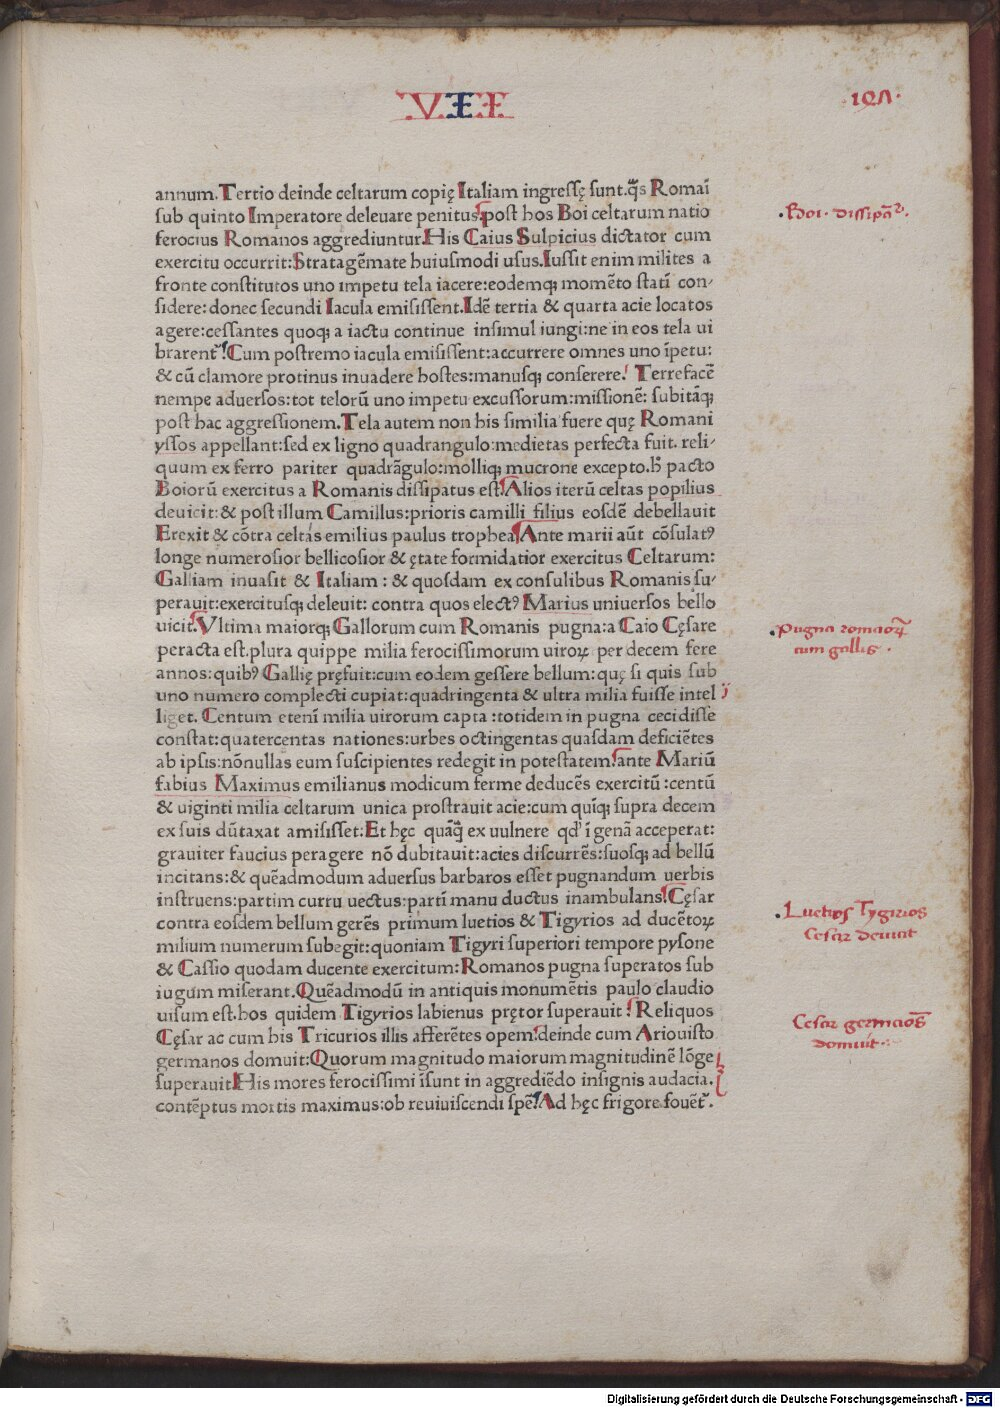 .V.I.I.
annum. Tertio deinde celtarum copię Italiam ingressę sunt. q̃s Romaī
sub quinto Imperatore deleuare penitus: post hos Boi celtarum natio
ferocius Romanos aggrediuntur. His Caius Sulpicius dictator cum
exercitu occurrit: Stratagēmate huiusmodi usus. Iussit enim milites a
fronte constitutos uno impetu tela iacere: eodemq; momēto statī con-
sidere: donec secundi Iacula emisissent. Idē tertia & quarta acie locatos
agere: cessantes quoq; a iactu continue insimul iungi: ne in eos tela ui
brarent᷑. Cum postremo iacula emisissent: accurrere omnes uno īpetu:
& cū clamore protinus inuadere hostes: manusq; conserere. Terrefacē
nempe aduersos: tot telorū uno impetu excussorum: missionē: subitāq;
post hac aggressionem. Tela autem non his similia fuere quę Romani
yssos appellant: sed ex ligno quadrangulo: medietas perfecta fuit. reli-
quum ex ferro pariter quadrāgulo: molliq; mucrone excepto. h̄ pacto
Boiorū exercitus a Romanis dissipatus est: Alios iterū celtas popilius
deuicit: & post illum Camillus: prioris camilli filius eosdē debellauit
Erexit & cōtra celtas emilius paulus trophea. Ante marii aūt cōsulatꝰ
longe numerosior bellicosior & ętate formidatior exercitus Celtarum:
Galliam inuasit & Italiam: & quosdam ex consulibus Romanis su-
perauit: exercitusq; deleuit: contra quos electꝰ Marius uniuersos bello
uicit. Vltima maiorq; Gallorum cum Romanis pugna: a Caio Cęsare
peracta est. plura quippe milia ferocissimorum uiroꝝ per decem fere
annos: quibꝰ Gallię pręfuit: cum eodem gessere bellum: quę si quis sub
uno numero complecti cupiat: quadringenta & ultra milia fuisse intel
liget. Centum etenī milia uirorum capta: totidem in pugna cecidisse
constat: quatercentas nationes: urbes octingentas quasdam deficiētes
ab ipsis: nōnullas eum suscipientes redegit in potestatem. ante Mariū
fabius Maximus emilianus modicum ferme deducēs exercitū: centū
& uiginti milia celtarum unica prostrauit acie: cum quīq; supra decem
ex suis dūtaxat amisisset: Et hęc quāq̃ ex uulnere qd' ī genā acceperat:
grauiter saucius peragere nō dubitauit: acies discurrēs: suosq; ad bellū
incitans: & quēadmodum aduersus barbaros esset pugnandum uerbis
instruens: partim curru uectus: partī manu ductus inambulans: Cęsar
contra eosdem bellum gerēs primum luetios & Tigyrios ad ducētoꝝ
milium numerum subegit: quoniam Tigyri superiori tempore pysone
& Cassio quodam ducente exercitum: Romanos pugna superatos sub
iugum miserant. Quēadmodū in antiquis monumētis paulo claudio
uisum est. hos quidem Tigyrios labienus prętor superauit: Reliquos
Cęsar ac cum his Tricurios illis afferētes opem: deinde cum Ariouisto
germanos domuit: Quorum magnitudo maiorum magnitudinē lōge
superauit. His mores ferocissimi īsunt in aggrediēdo insignis audacia.
contēptus mortis maximus: ob reuiuiscendi spē: Ad hęc frigore fouēt᷑.
Boi dissipāt᷑.
pugna romaoꝝ
cum gallis.
Luetios Tygirios
Cesar deuicit
Cesar germaōs
domuit.
Digitalisierung gefördert durch die Deutsche Forschungsgemeinschaft - DFG